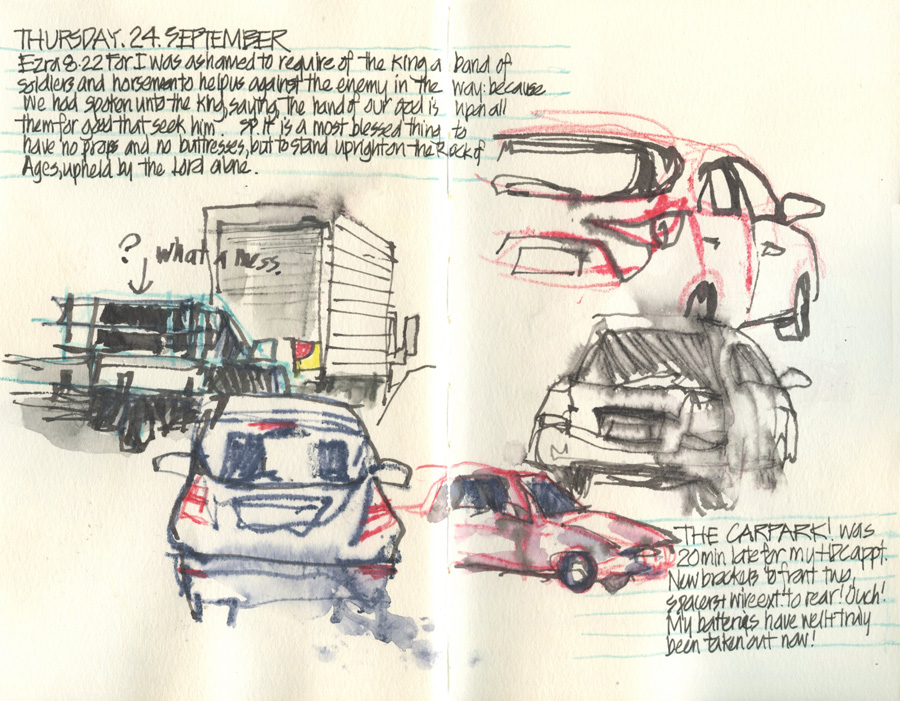 THURSDAY. 24. SEPTEMBER
Ezra 8:22 For I was ashamed to require of the King a band of
soldiers and horsemen to help us against the enemy in the way: because
we had spoken unto the King, saying, The hand of our God is upon all
them for good that seek him. SP. It is a most blessed thing to
have no props and no buttresses, but to stand upright on the Rock of
Ages, upheld by the Lord alone.
? what a mess.
THE CARPARK! was
20 min late for my HDC appt.
New brackets to front two,
spacers + wire ext. to rear! Ouch!
My batteries have well + truly
been taken out now!